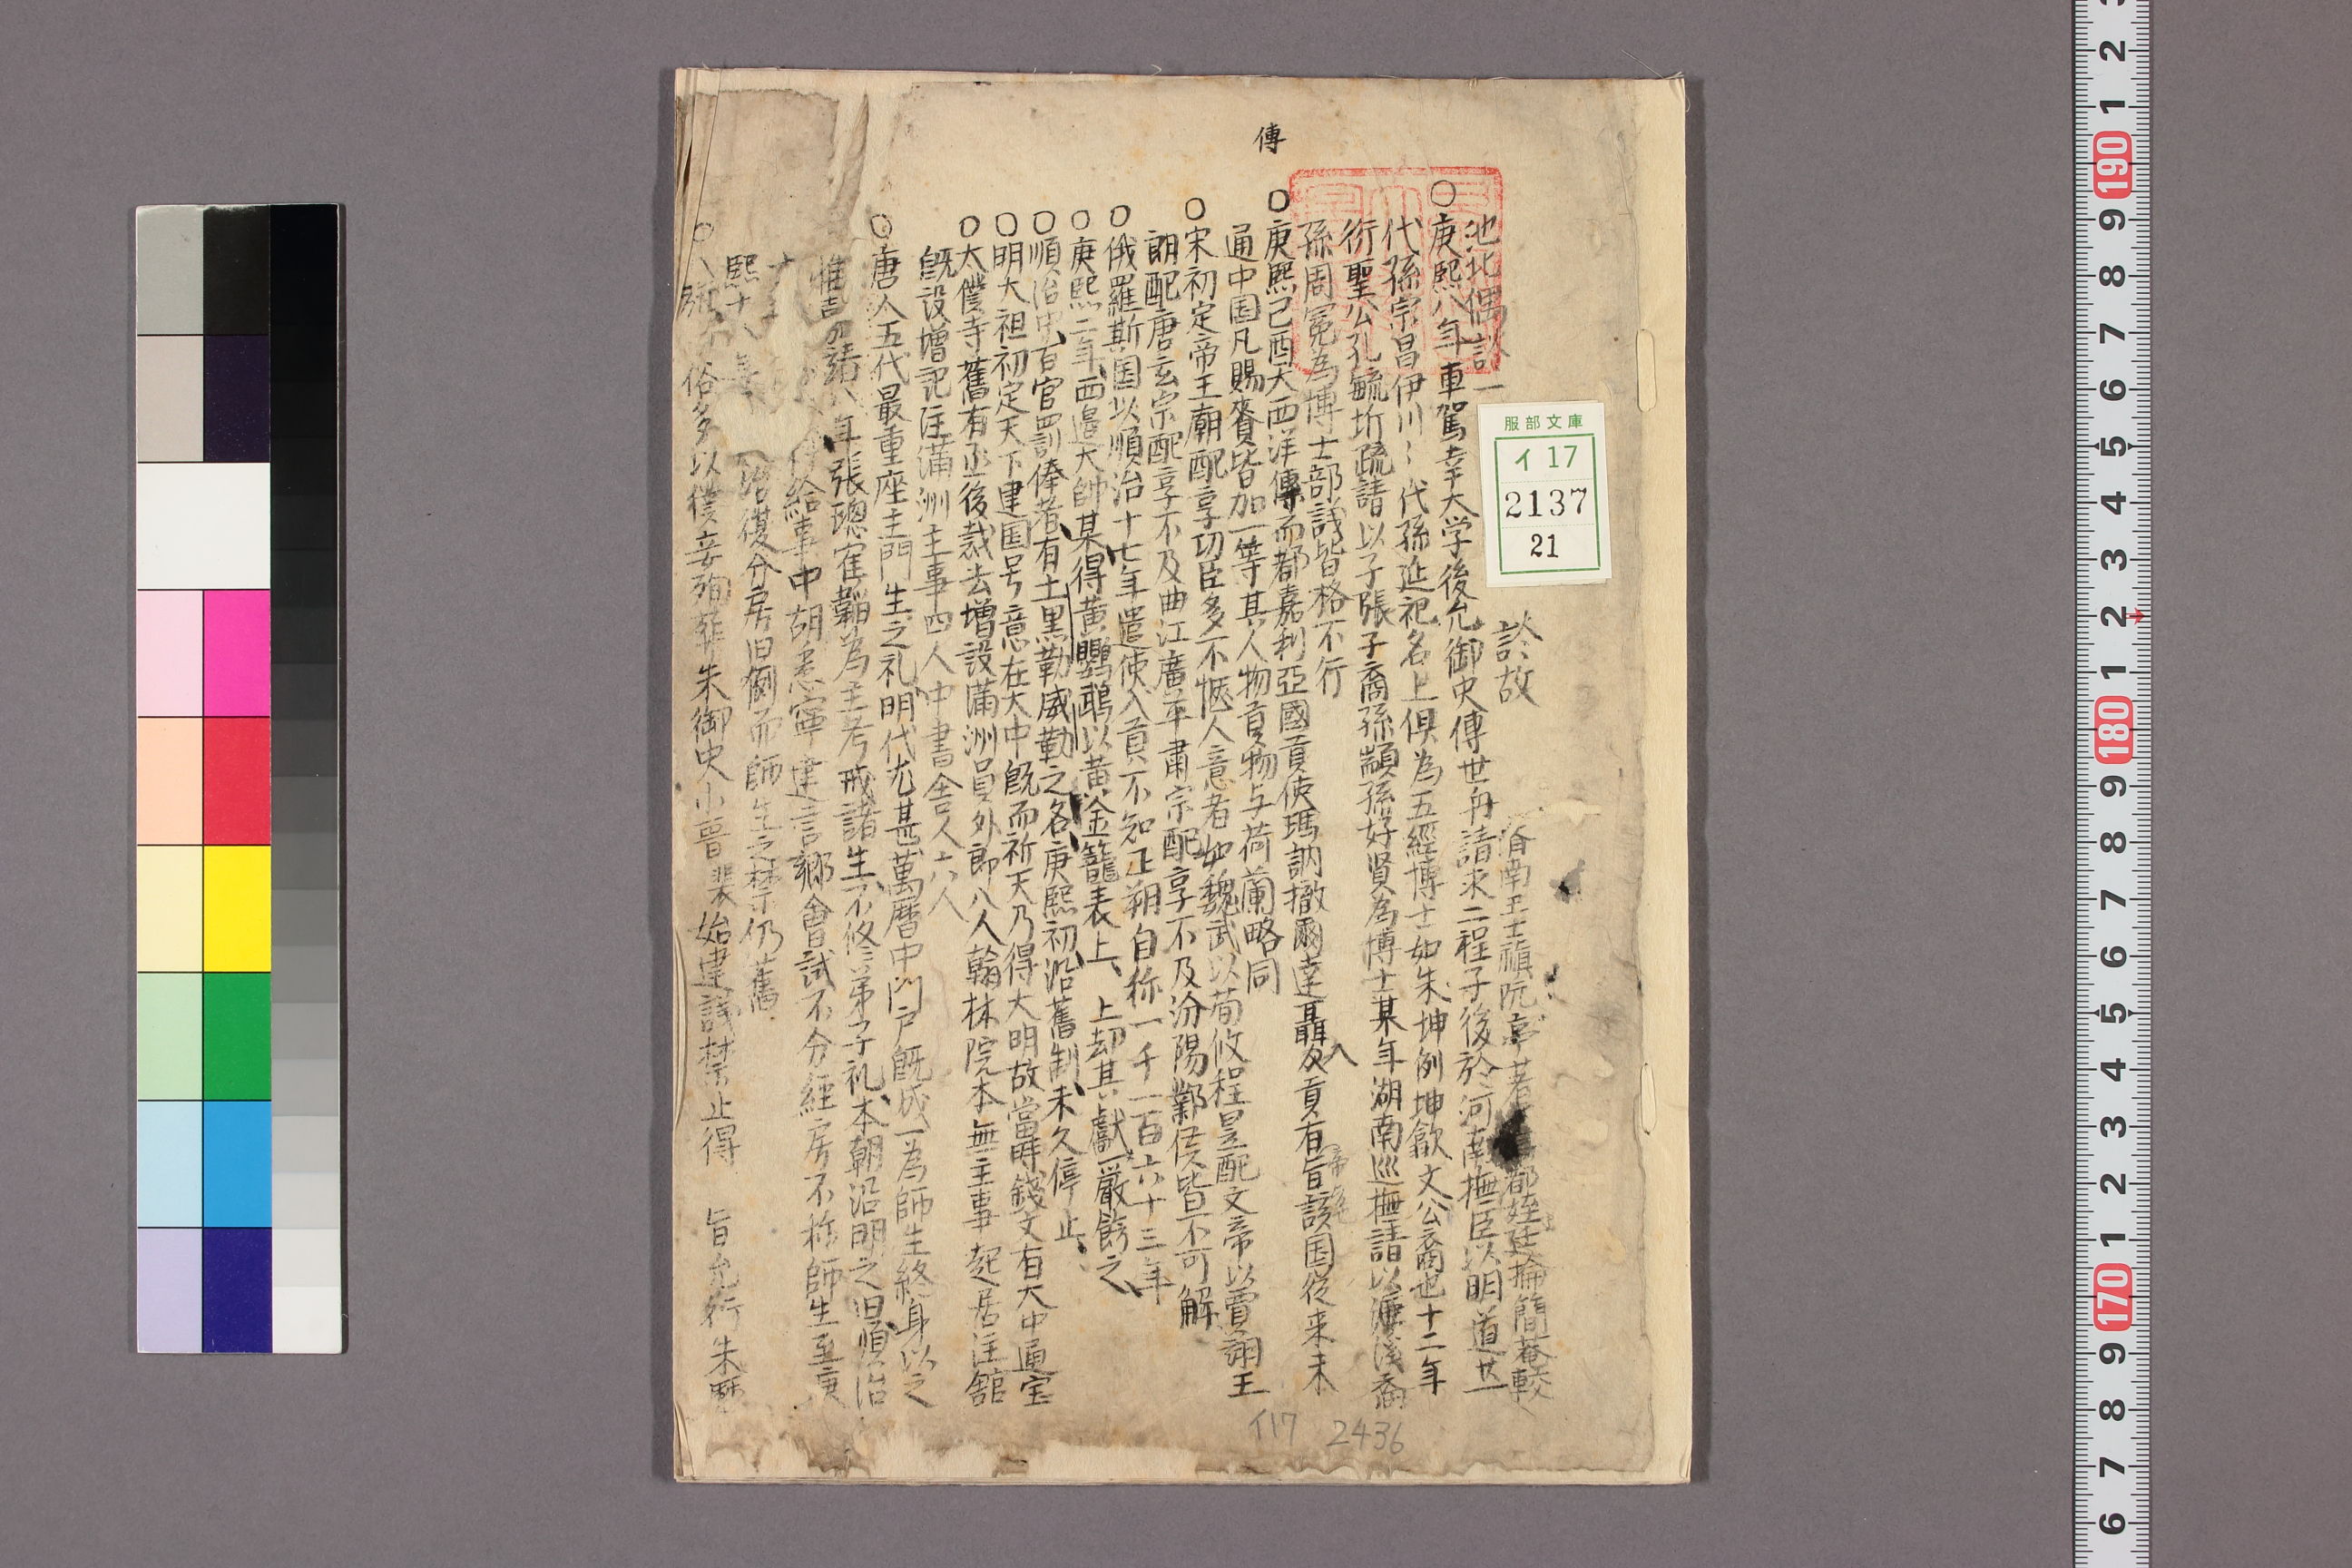 傳
池北偶談一
談故
濟南王士禛阮亭著
都姪廷掄簡菴較
○庚熙八年車駕幸大学後允御史傅世舟請求二程子後於河南撫臣以明道廿一
代孫宗昌伊川〻代孫延祀名上俱為五經博士如朱坤例坤歙文公裔也十二年
衍聖公孔毓圻疏請以子張子裔孫顓孫好賢為博士某年湖南巡撫請以濂溪裔
孫周冕為博士部議皆格不行
○庚熙己酉大西洋傳而都嘉利亞國貢使瑪訥撒爾達聶入貢有旨該国従来未
通中国凡賜賚皆加一等其人物貢物与荷蘭略同
○宋初定帝王廟配享功臣多不愜人意者如魏武以荀攸程昱配文帝以賈詡王
朗配唐玄宗配享不及曲江廣平肅宗配享不及汾陽鄴侯皆不可解
○俄羅斯国以順治十七年遣使入貢不知正朔自称一千一百六十三年
○庚熙二年西邉大帥某得黄鸚鵡以黄金籠表上上却其獻嚴飭之
○順治中百官罰俸者有土黒勒威勒之名庚熙初沿舊制未久停止
○明大祖初定天下建国号意在大中既而祈天乃得大明故當時錢文有大中通宝
○太僕寺舊有丞後裁去増設滿洲員外郎八人翰林院本無主事起居注舘
既设増記注滿洲主事四人中書舎人六人
○唐人五代最重座主門生之礼明代尤甚萬暦中門戸既成一為師生終身以之
年張璁霍韜為主考戒諸生不修弟子礼本朝沿明之旧順治
給事中胡悉寧建言郷會試不分經房不称師生至庚
熙十八年 復分房旧例而師生之禁仍舊
○八旗 俗多以僕妾殉葬朱御史小晉裴始建議禁止得 旨允行朱
服部文庫
イ17
2137
21
イ17 2436